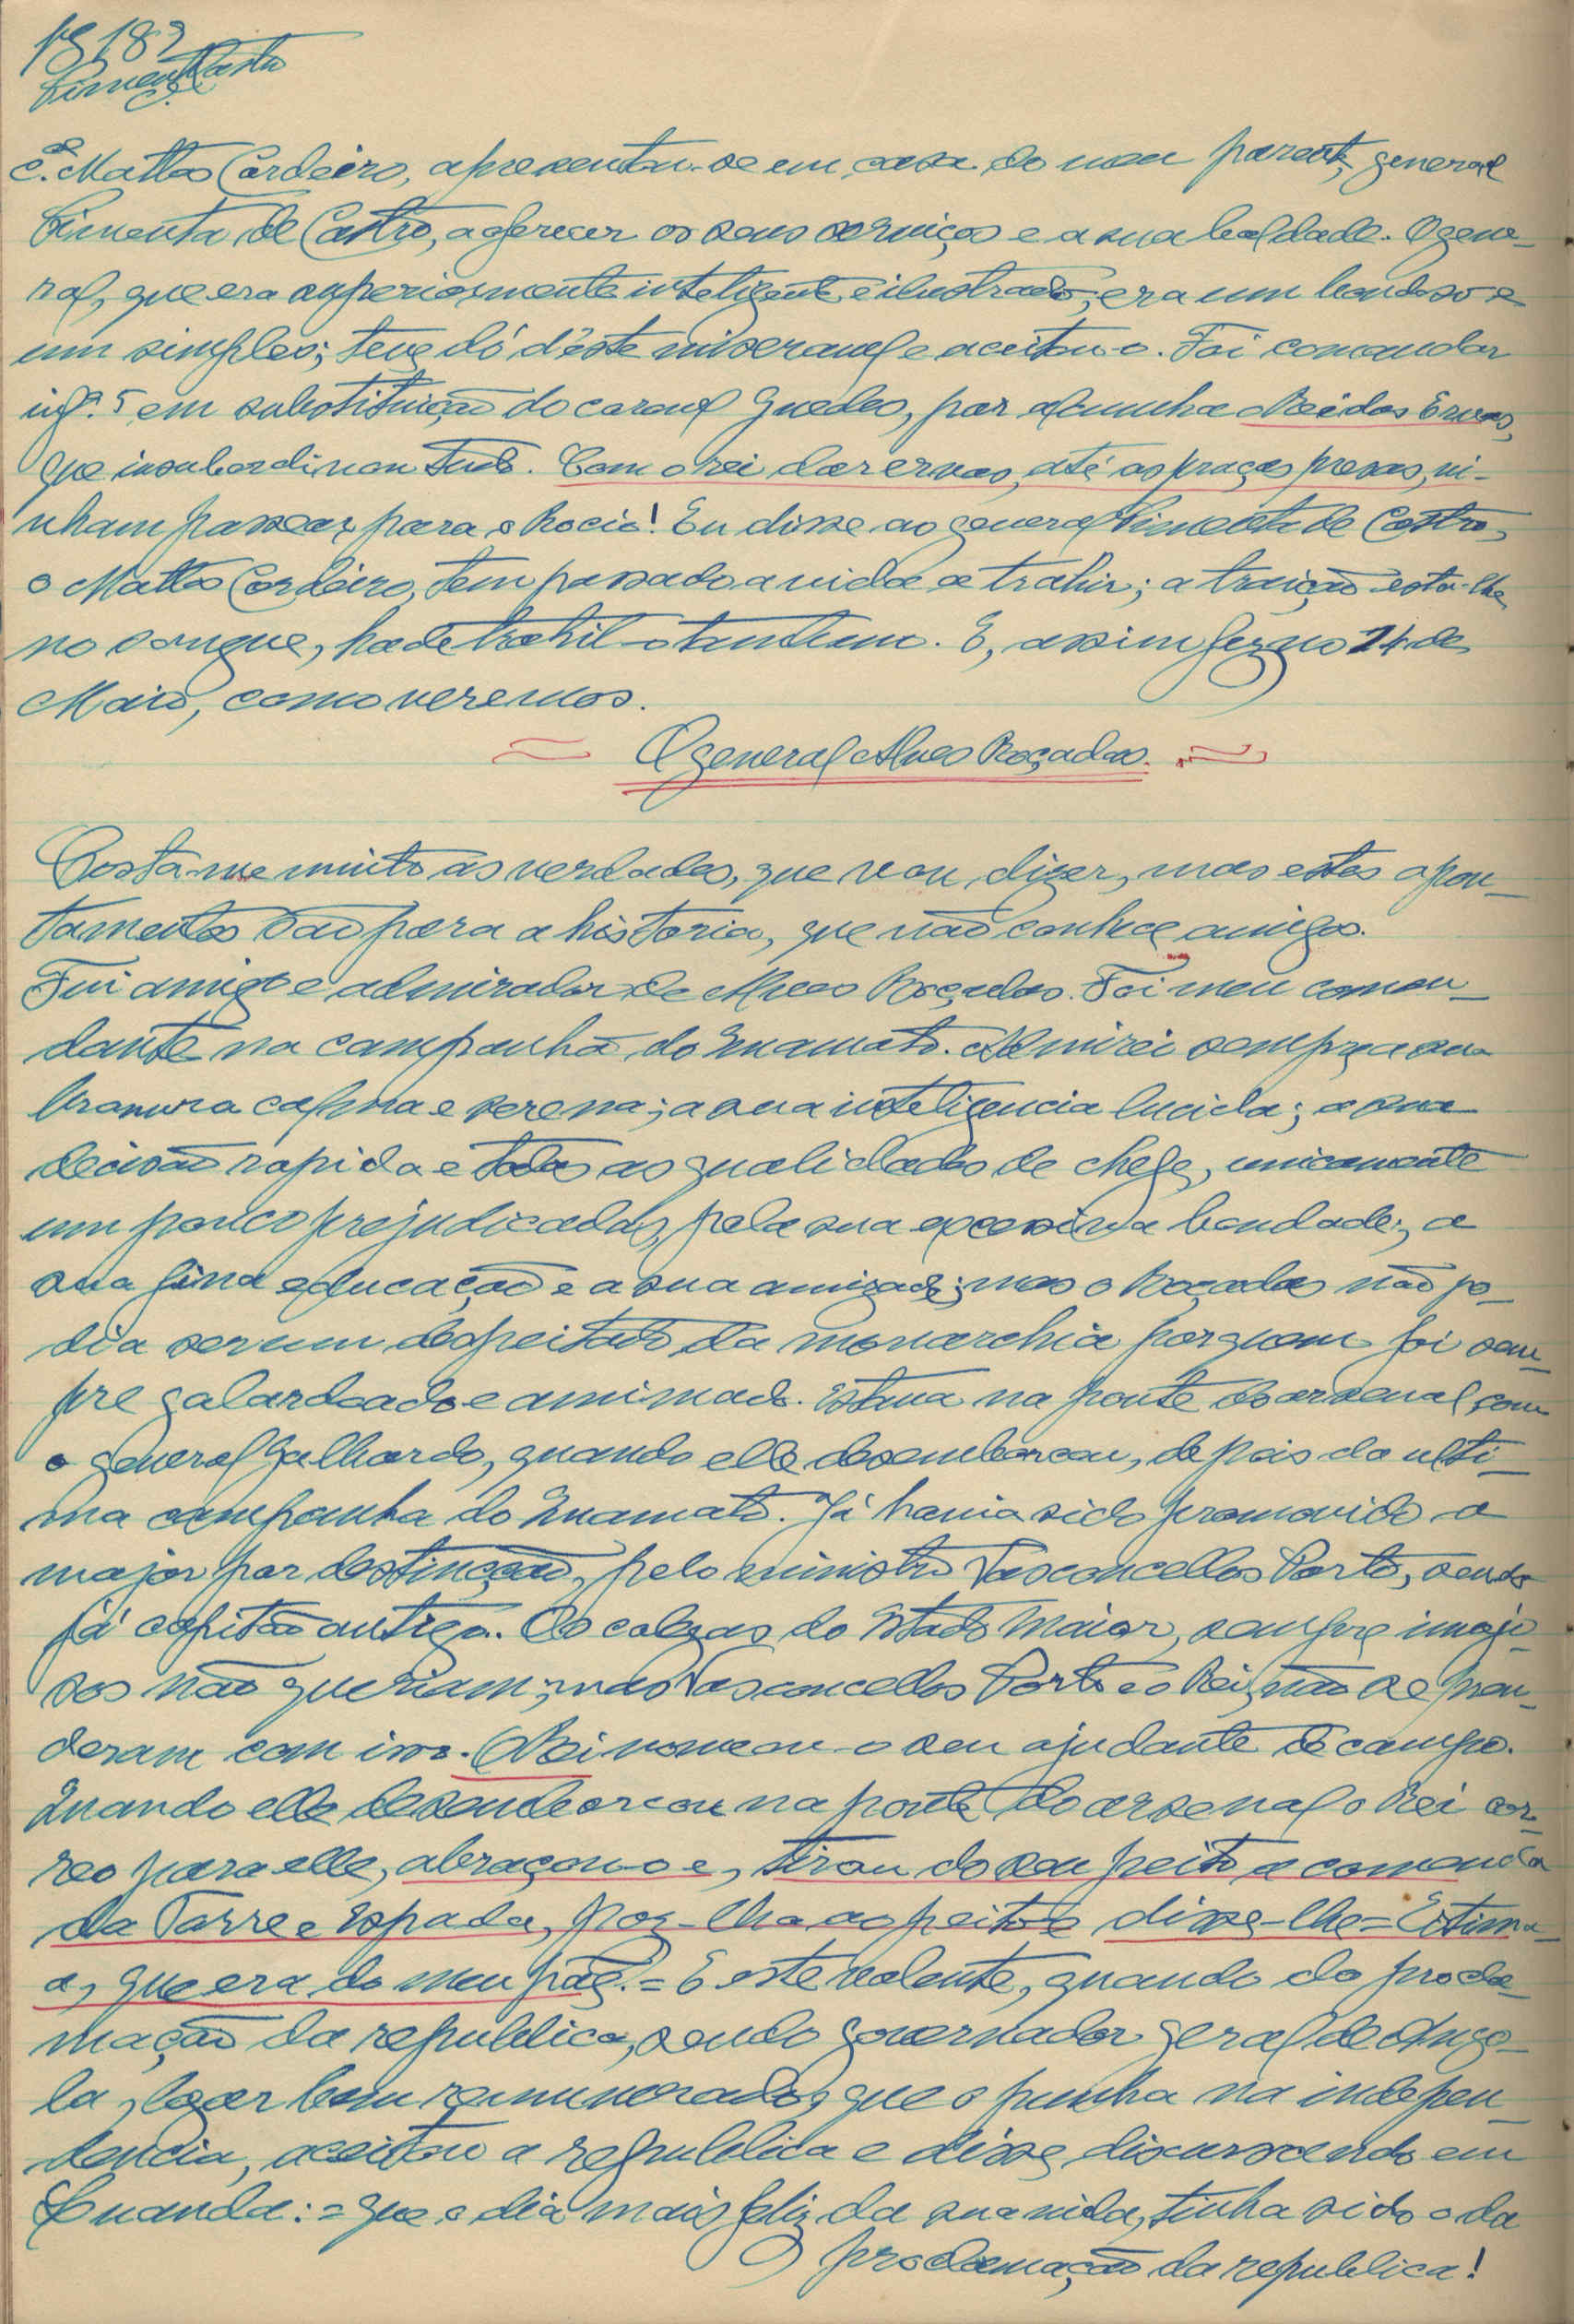 pg 182
Pimenta Castro
C.el Mattos Cordeiro, apresentou-se em casa do meu parente, general
Pimenta de Castro, a oferecer os seus serviços e a sua lealdade. O gene-
ral, que era superiormente inteligente e ilustrado, era um bondoso e
um simples; teve dó d'este miseravel e aceitou-o. Foi comandar
inf.ª 5, em substituição do coronel Guedes, por alcunha o Rei das Ervas,
que insubordinou tudo. Com o rei das ervas, até as praças presas, vi-
nham passear para o Rocio! Eu disse ao general Pimenta de Castro,
o Mattos Cordeiro, tem passado a vida a trahir; a traição está-lhe
no sangue, hade trahil-o tambem. E, assim fez no 14 de
Maio, como veremos.
O general Alves Roçadas.
Costa-me muito as verdades, que vou dizer, mas estes apon-
tamentos são para a historia, que não conhece amigos.
Fui amigo e admirador de Alves Roçadas. Foi meu coman-
dante na campanha do Cuamato. Admirei sempre a sua
bravura calma e serena; a sua inteligencia lucida; a sua
decisão rapida e todas as qualidades de chefe, unicamente
um pouco prejudicadas, pela sua excessiva bondade; a
sua fina educação e a sua amizade; mas o Roçadas não po-
dia ser um despeitado da monarchia por quem foi sem-
pre galardoado e amimado. Estava na ponte do arsenal, com
o general Galhardo, quando elle desembarcou, depois da ulti-
ma campanha do Cuamato. Já havia sido promovido a
major por destincção, pelo ministro Vasconcellos Porto, sendo
já capitão antigo. Os colegas do Estado Maior, sempre invejo-
sos não queriam; mas Vasconcellos Porto e o Rei, não se pren-
deram com isso. O Rei nomeou-o seu ajudante de campo.
Quando elle desembarcou na ponte do arsenal o Rei cor-
reo para elle, abraçou-o e, tirou do seu peito a comenda
da Torre e Espada, poz-lha ao peito e disse-lhe = Estima-
a, que era do meu pae. = E este valente, quando da procla-
mação da republica, sendo governador geral de Ango-
la, logar bem remunerado, que o punha na indepen-
dencia, aceitou a republica e disse, discursando em
Luanda: = que o dia mais feliz da sua vida, tinha sido o da
proclamação da republica!